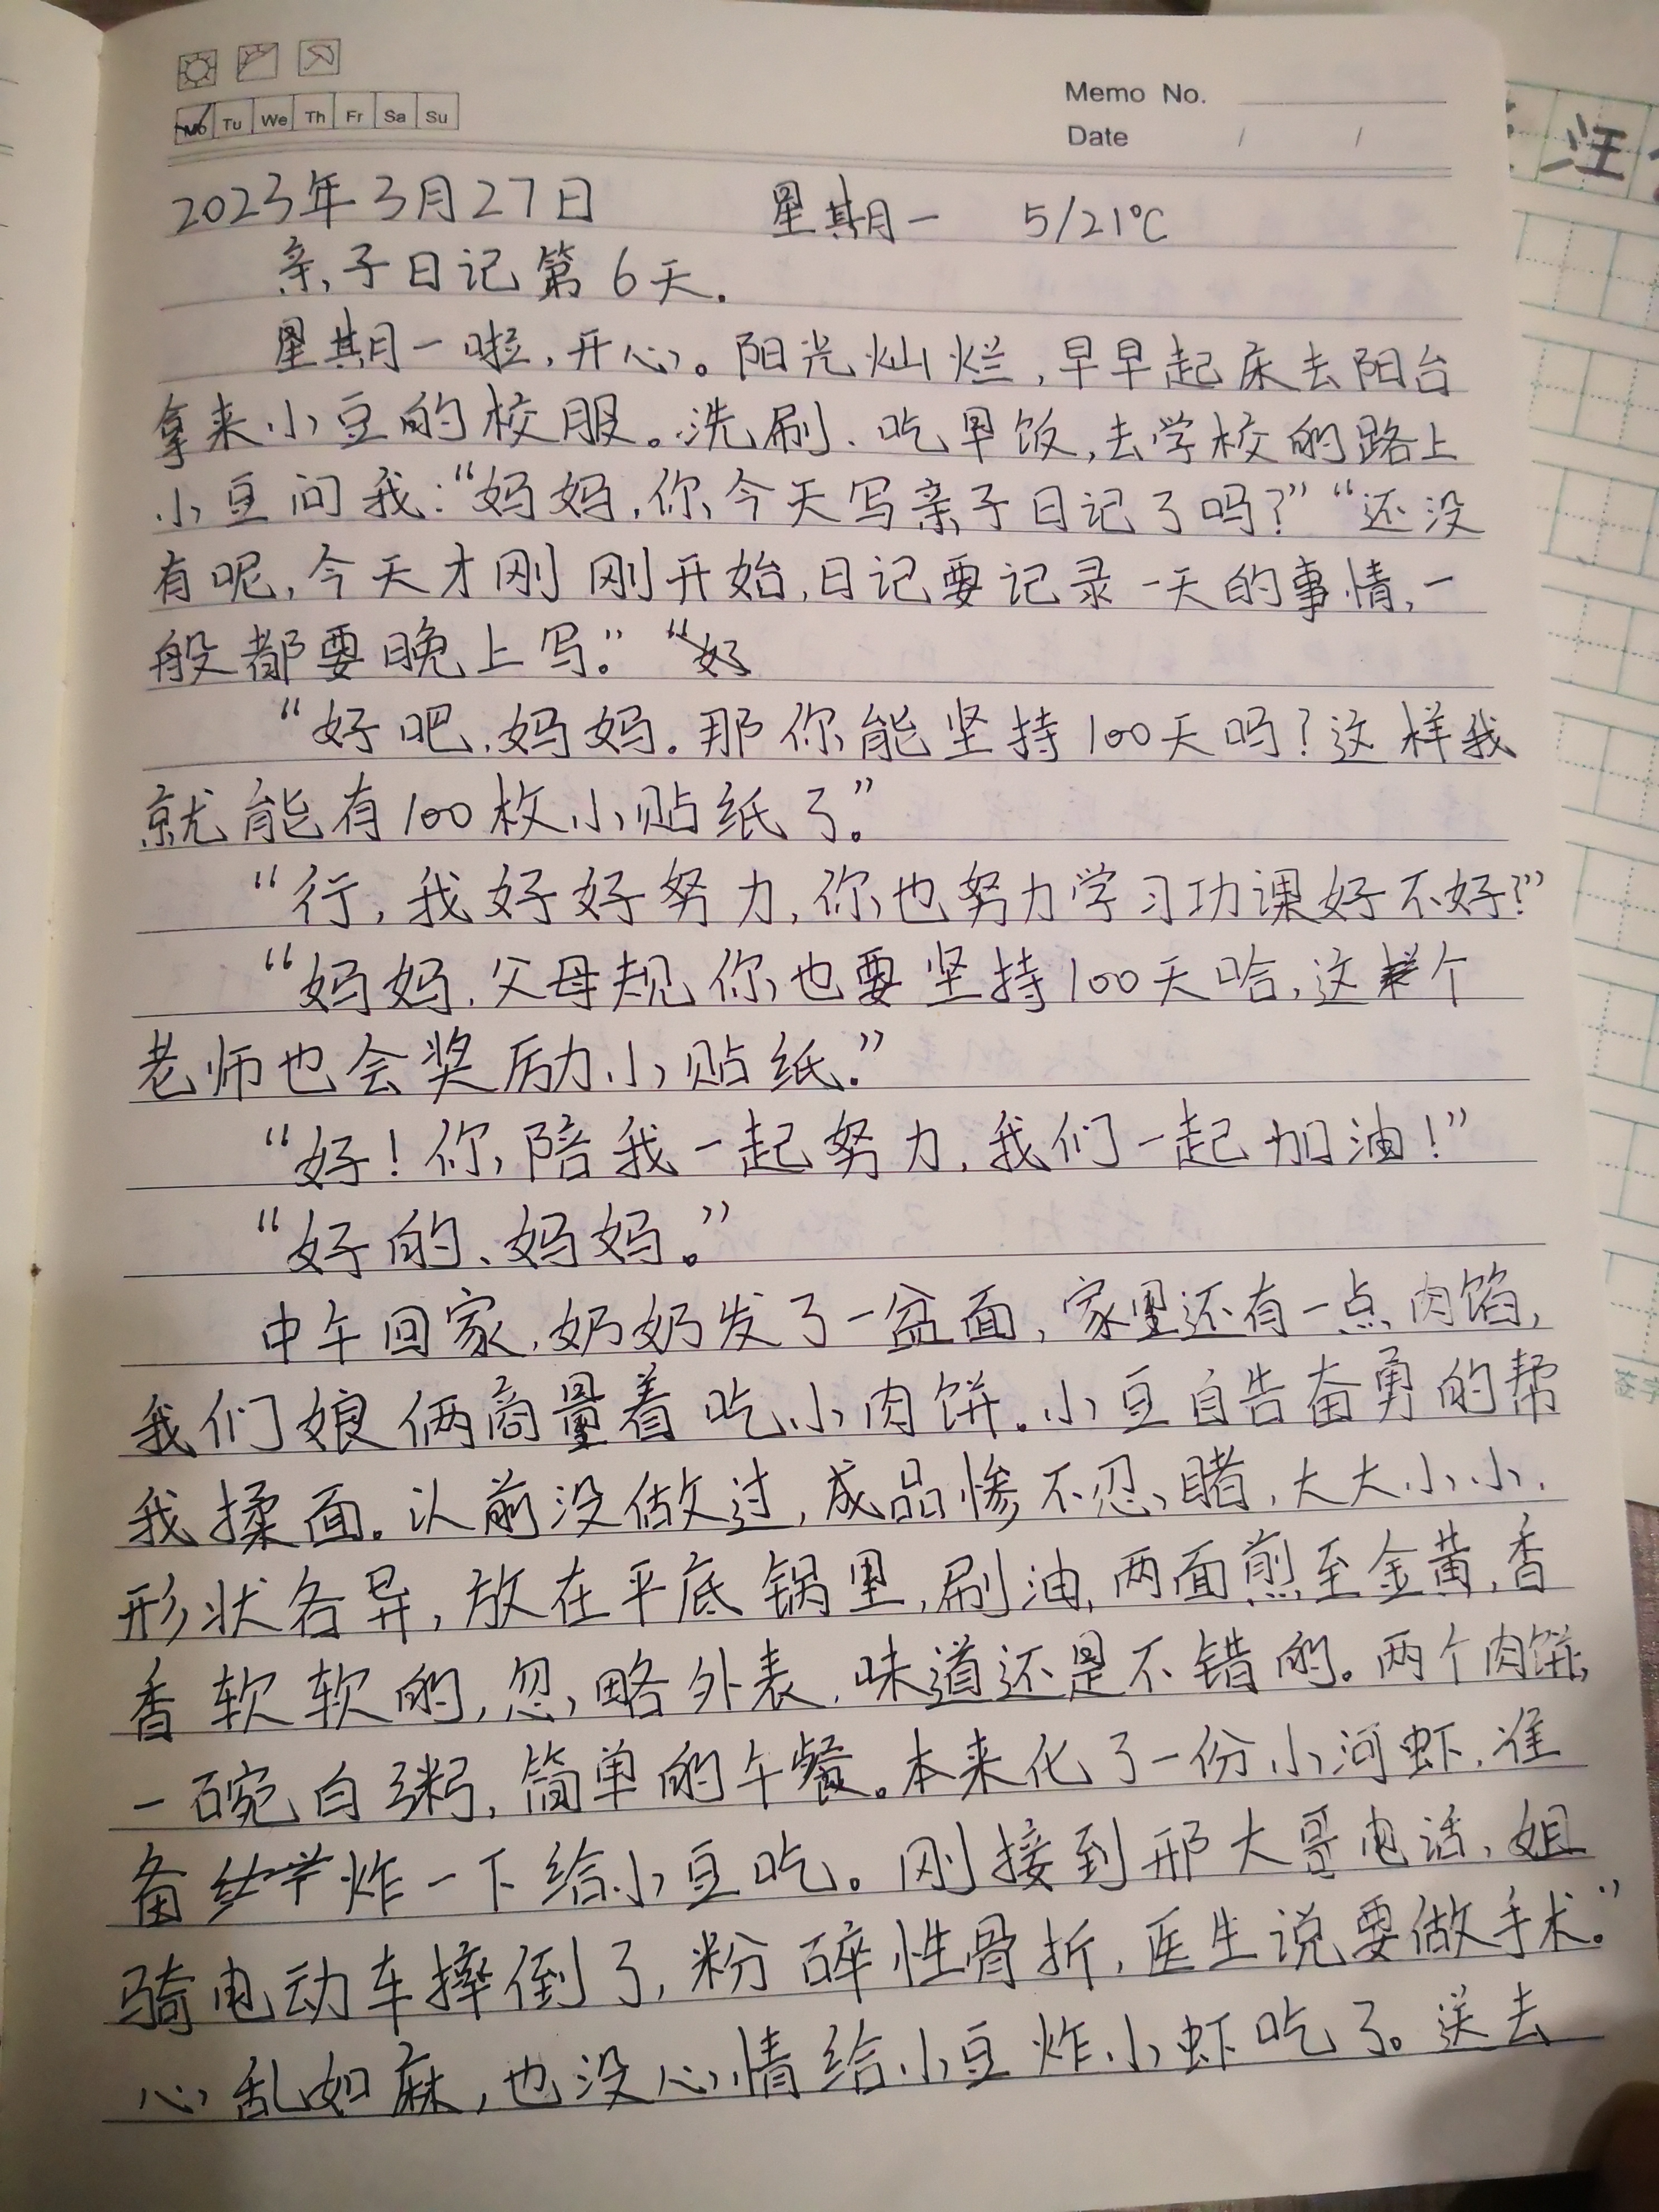 Mo Tu We Th Fr Sa Su
Memo No.
Date / /
2023年3月27日 星期一 5/21℃
亲子日记第6天.
星期一啦,开心。阳光灿烂,早早起床去阳台
拿来小豆的校服。洗刷、吃早饭,去学校的路上
小豆问我:“妈妈,你今天写亲子日记了吗?”“还没
有呢,今天才刚刚开始,日记要记录一天的事情,一
般都要晚上写。”“好
“好吧,妈妈。那你能坚持100天吗?这样我
就能有100枚小贴纸了。”
“行,我好好努力,你也努力学习功课好不好?”
“妈妈,父母规你也要坚持100天哈,这个
老师也会奖励小贴纸.”
“好!你陪我一起努力,我们一起加油!”
“好的、妈妈。”
中午回家,奶奶发了一盆面,家里还有一点肉馅,
我们娘俩商量着吃小肉饼。小豆自告奋勇的帮
我揉面。以前没做过,成品惨不忍睹,大大小小,
形状各异,放在平底锅里,刷油,两面煎至金黄,香
香软软的,忽略外表,味道还是不错的。两个肉饼,
一碗白粥,简单的午餐。本来化了一份小河虾,准
备炸一下给小豆吃。刚接到邢大哥电话,姐
骑电动车摔倒了,粉碎性骨折,医生说要做手术。”
心乱如麻,也没心情给小豆炸小虾吃了。送去
汪